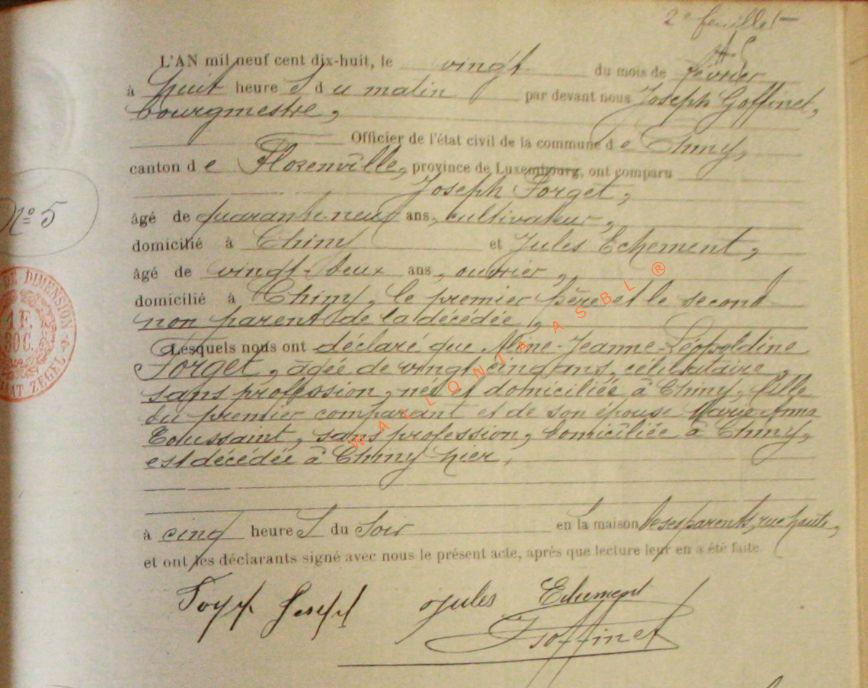 2e feuillet
L'AN mil neuf cent dix-huit, le vingt du mois de février
à huit heure s du matin par devant nous Joseph Goffinet,
bourgmestre,
Officier de l'état civil de la commune de Chiny,
canton de Florenville, province de Luxembourg, ont comparu
Joseph Forget,
No 5
âgé de quarante-neuf ans, cultivateur,
domicilié à Chiny et Jules Echement,
âgé de vingt-deux ans, ouvrier,
domicilié à Chiny, le premier père et le second
non parent de la décédée,
Lesquels nous ont déclaré que Jeanne-Léopoldine
Forget, âgée de vingt cinq ans, célibataire,
sans profession, née et domiciliée à Chiny, fille
du premier comparant et de son épouse Marie Anna
Toussaint, sans profession, domiciliée à Chiny,
est décédée à Chiny hier,
à cinq heure s du soir en la maison de ses parents, rue haute,
et ont les déclarants signé avec nous le présent acte, après que lecture leur en a été faite
Jules Echement
JGoffinet
DE DIMENSION
1 F.
30C.
ZEGEL
WALLONIA ASBL ®